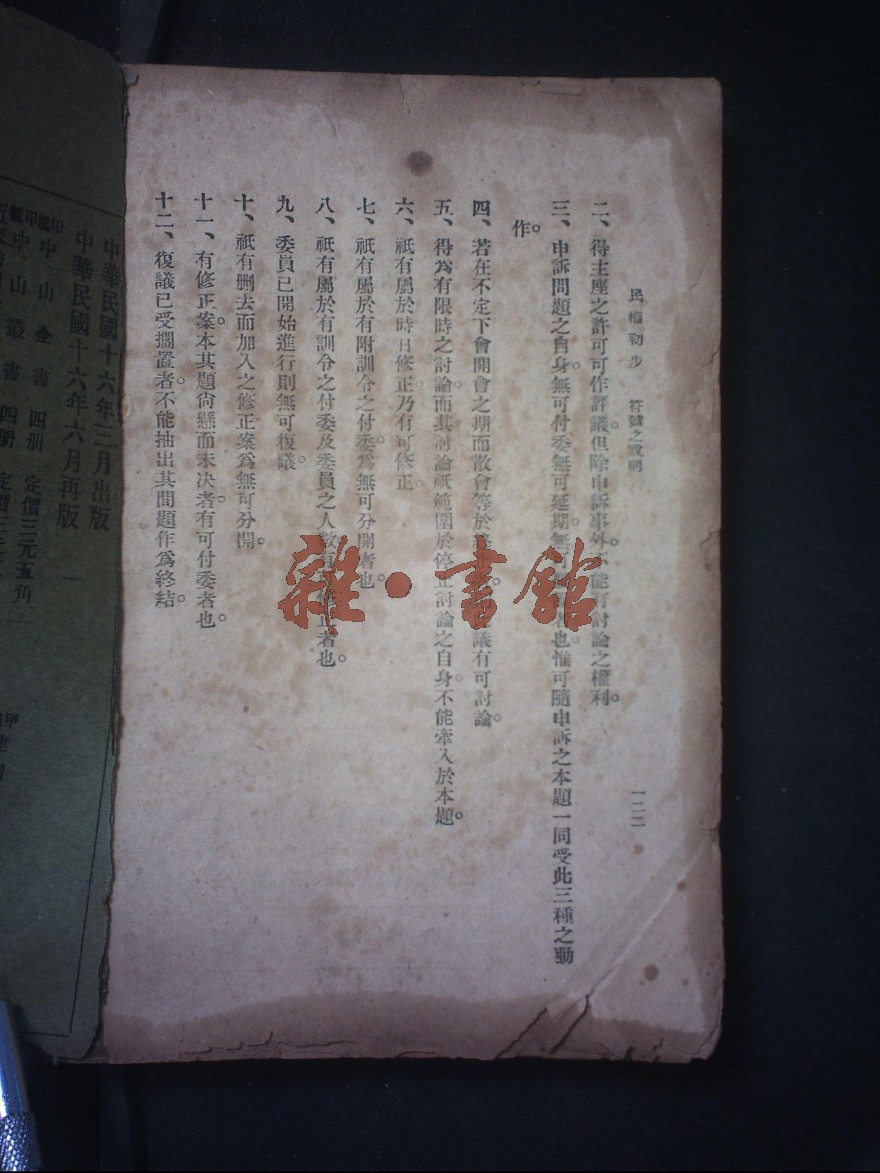 民權初步 符號之說明 一二二
二、得主座之許可可作評議。但除申訴事外不能有討論之權利。
三、申訴問題之自身。無可付委無可延期。無可 者也。惟可隨申訴之本題一同受此三種之動
作。
四、若在不定下會開會之期而散會等於終止 議有可討論。
五、得爲有限時之討論。而其討論祇範圍於停止討論之自身。不能牽入於本題。
六、祇有屬於時日修正。乃有可修正。
七、祇有屬於有附訓令之付委。爲無可分開者也。
八、祇有屬於有訓令之付委及委員之人數有 正者也。
九、委員已開始進行則無可復議。
十、祇有刪去而加入之修正案爲無可分開。
十一、有修正案本其題尙懸而未決者。有可付委者也。
十二、復議已受擱置者。不能抽出其問題作爲終結。
雜·書館
中華民國十六年三月出版
中華民國十六年六月再版
甲種中山全書 四册 定價三元五角
中山叢書 四册 定價